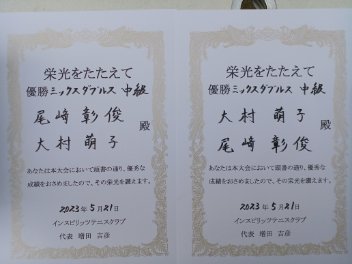 栄光をたたえて
優勝 ミックスダブルス 中級
尾崎 彰俊
大村 萌子 殿
あなたは本大会において頭書の通り、優秀な
成績をおさめましたので、その栄光を讃えます。
2023年5月21日
インスピリッツテニスクラブ
代表 増田 吉彦
栄光をたたえて
優勝 ミックスダブルス 中級
大村 萌子
尾崎 彰俊 殿
あなたは本大会において頭書の通り、優秀な
成績をおさめましたので、その栄光を讃えます。
2023年5月21日
インスピリッツテニスクラブ
代表 増田 吉彦